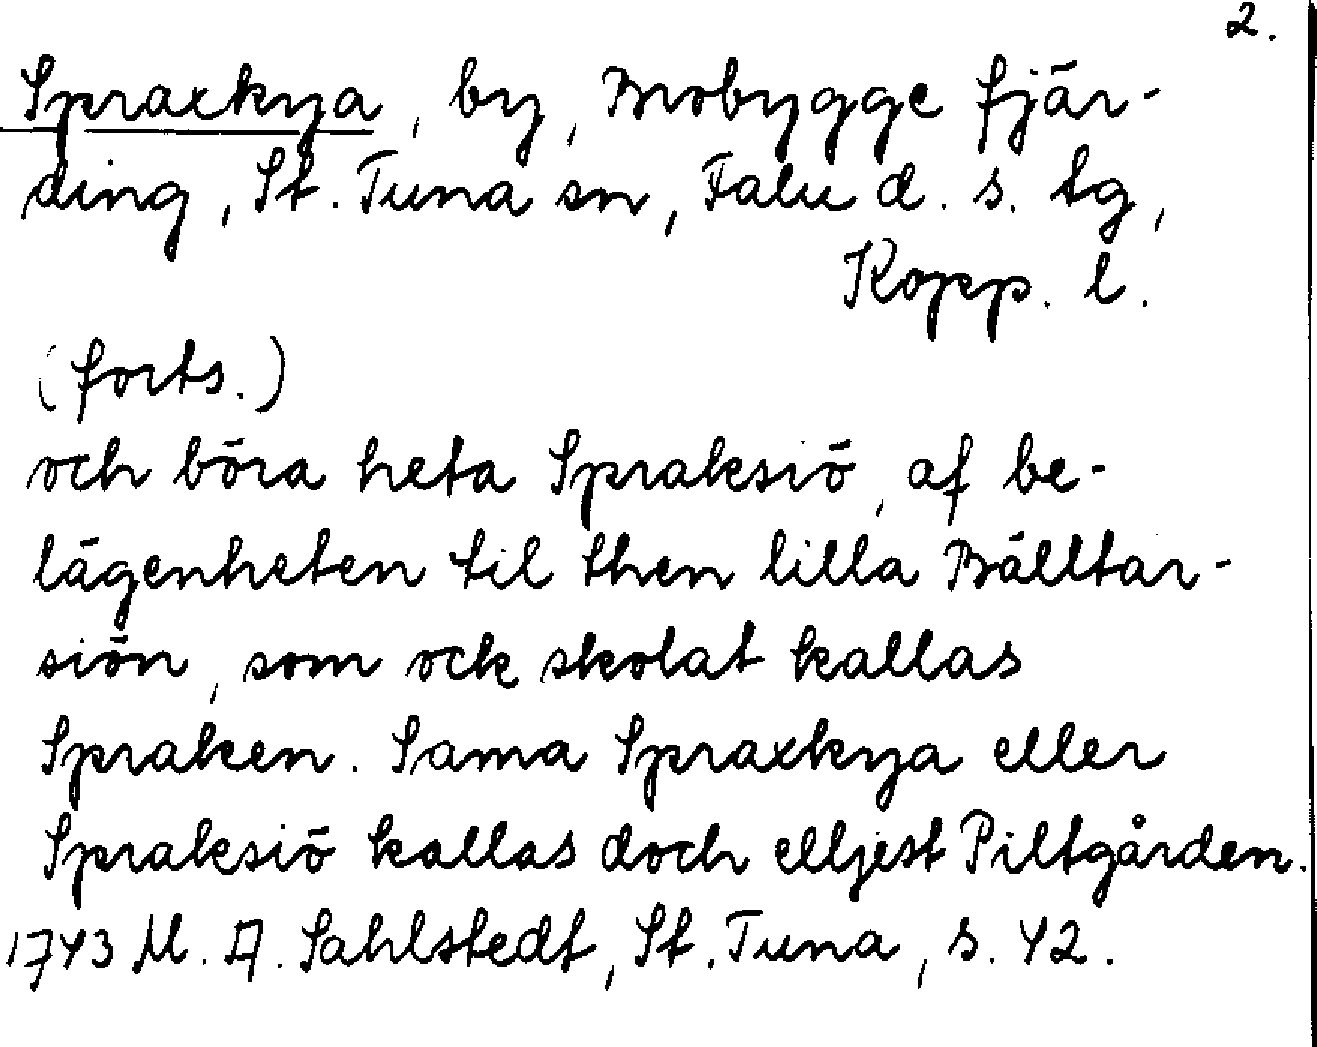 2.
Spraxkya, by, Brobygge fjär-
ding, St. Tuna sn, Falu d. s. tg,
Kopp. l.
(forts.)
och böra heta Spraksiö, af be-
lägenheten til then lilla Bälltar-
siön, som ock skolat kallas
Spraken. Sama Spraxkya eller
Spraksiö kallas doch elljest Piltgården.
1743 M. A. Sahlstedt, St. Tuna, s. 42.